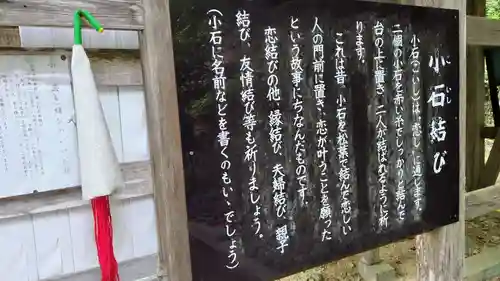 小石結び
こいし
小石(こいし)は、「恋し」に通じます。
二個の小石を赤い糸でしっかりと結んで
台の上に置き、二人が結ばれるように祈
ります。
これは昔、小石を松葉で結んで恋しい
人の門前に置き、恋が叶うことを願った
という故事にちなんだものです。
恋結びの他、縁結び、夫婦結び、親子
結び、友情結び等も祈りましょう。
(小石に名前などを書くのもいゝでしょう)